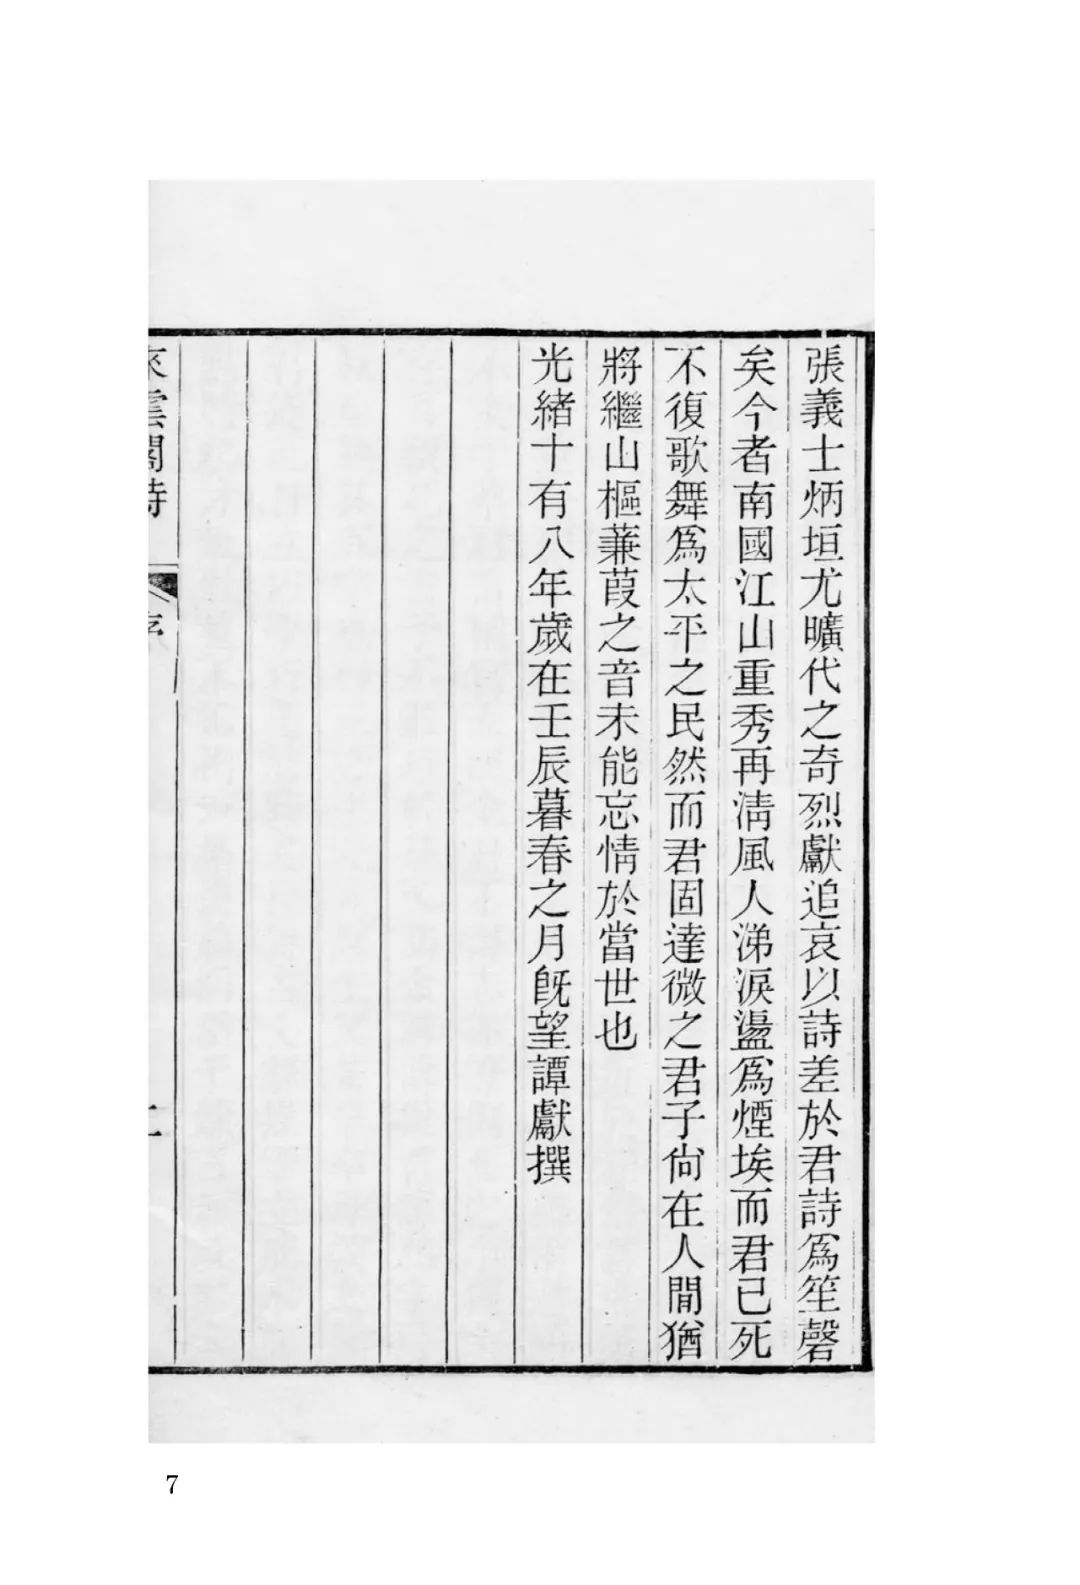 張義士炳垣尤曠代之奇烈獻追哀以詩差於君詩爲笙磬
矣今者南國江山重秀再淸風人涕淚盪爲煙埃而君已死
不復歌舞爲太平之民然而君固達微之君子尙在人閒猶
將繼山樞蒹葭之音未能忘情於當世也
光緒十有八年歲在壬辰暮春之月旣望譚獻撰
來雲閣詩 序 二
7